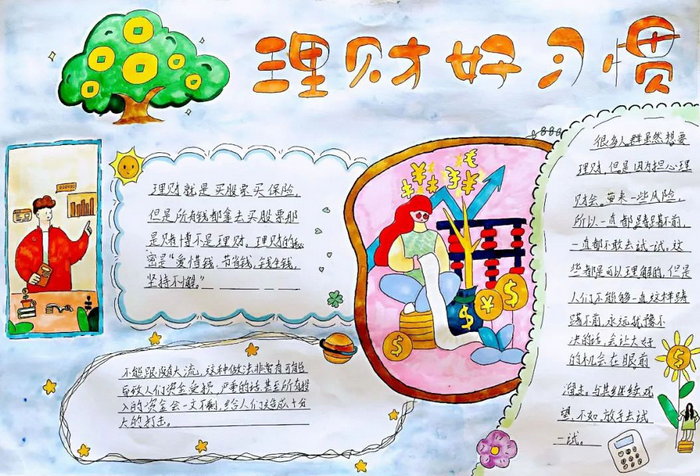 理财好习惯
理财就是买股票买保险,
但是所有钱都拿去买股票那
是赌博不是理财,理财的秘
密是"爱惜钱,节省钱,钱生钱,
坚持不懈。"
不能跟随大流,这种做法非常有可能
导致人们资金受损,严重的话甚至所有投
入的资金会一文不剩,给人们造成十分
大的打击。
很多人群虽然想要
理财,但是因为担心理
财会带来一些风险,
所以一直都踌躇不前,
一直都不敢去试一试,这
些都是可以理解的,但是
人们不能够一直这样踌
躇不前,永远犹豫不
决的话,会让大好
的机会在眼前
溜走,与其继续观
望,不如放手去试
一试。